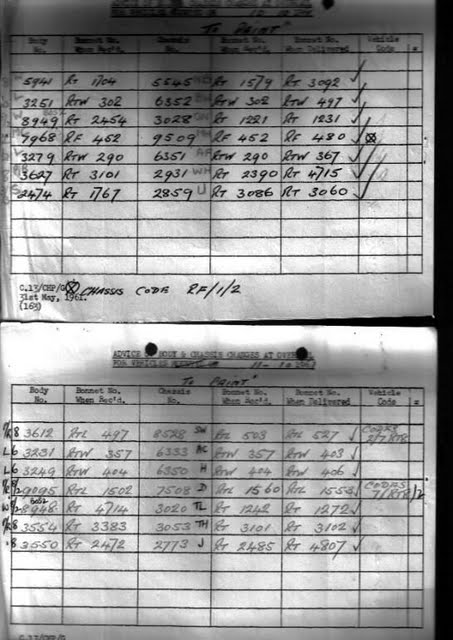 FOR VEHICLES
TO PRINT
Body No. Bonnet No. When Rec'd. Chassis No. Bonnet No. When Rec'd. Bonnet No. When Delivered Vehicle Code
5941 RT 1704 5545 RT 1579 RT 3092 ✓
3251 RTW 302 6352 RTW 302 RTW 497 ✓
8949 RT 2454 3028 RT 1221 RT 1231 ✓
7968 RF 452 9509 RF 452 RF 480 ✓
3279 RTW 290 6351 AR RTW 290 RTW 367 ✓
3627 RT 3101 2931 WH RT 2390 RT 4715 ✓
2474 RT 1767 2859 U RT 3086 RT 3060 ✓
C.13/CHP/G CHASSIS CODE RF/1/2
31st May, 1961.
(163)
ADVICE OF BODY & CHASSIS CHANGES AT OVERHAUL
FOR VEHICLES
TO PRINT
Body No. Bonnet No. When Rec'd. Chassis No. Bonnet No. When Rec'd. Bonnet No. When Delivered Vehicle Code *
8 3612 RTL 497 8528 SW RTL 503 RTL 527 ✓ CODES 2/7 RT8
L6 3231 RTW 357 6333 AC RTW 357 RTW 403 ✓
L6 3249 RTW 404 6350 H RTW 404 RTW 406 ✓
9095 RTL 1502 7508 D RTL 1560 RTL 1553 ✓ CODES 7/RT8/2
8948 RT 4714 3020 TL RT 1242 RT 1272 ✓
8 3554 RT 3383 3053 TH RT 3101 RT 3102 ✓
8 3550 RT 2472 2773 J RT 2485 RT 4807 ✓
C.13/CHP/G